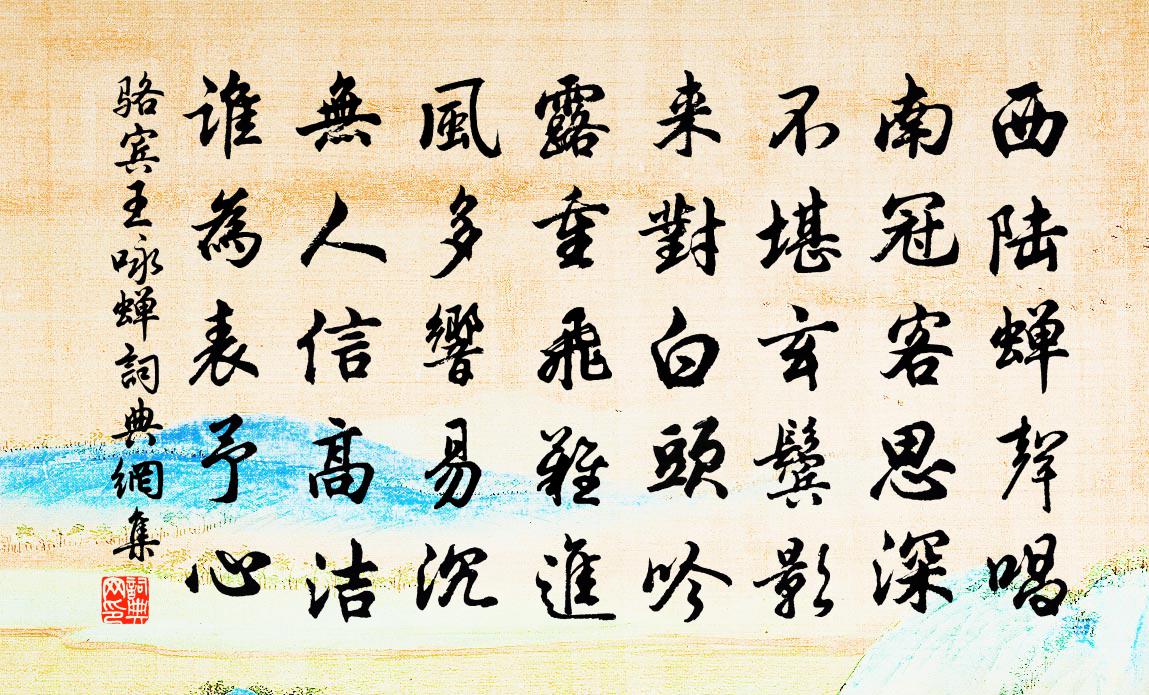 西陆蝉聲唱
南冠客思深
不堪玄鬓影
来對白頭吟
露重飛難進
風多響易沉
無人信高洁
谁為表予心
骆宾王咏蝉詞典網集
詞典網印